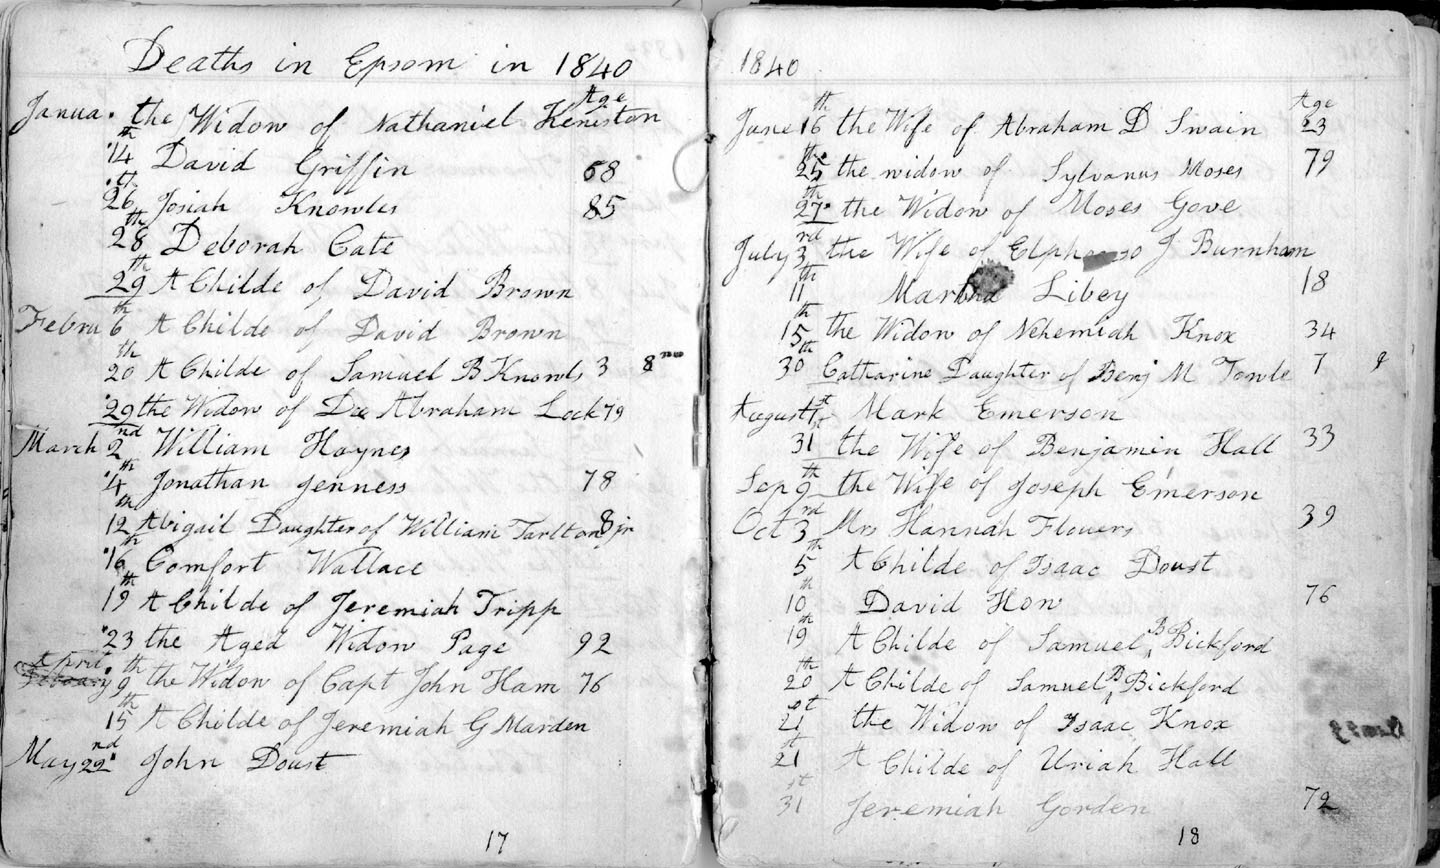 Deaths in Epsom in 1840
Age
Janua. the Widow of Nathaniel Keniston
14th David Griffin 68
26th Josiah Knowles 85
28th Deborah Cate
29th A Childe of David Brown
Febru 6th A Childe of David Brown
20th A Childe of Samuel B Knowls 3 8 mo
29 the Widow of Dea Abraham Lock 79
March 2nd William Haynes
4th Jonathan Jenness 78
12th Abigail Daughter of William Tarlton jr 8
16th Comfort Wallace
19th A Childe of Jeremiah Tripp
23 the Aged Widow Page 92
April 9th the Widow of Capt John Ham 76
15th A Childe of Jeremiah G Marden
May 22nd John Doust
17
1840
Age
June 16th the Wife of Abraham D Swain 23
25th the widow of Sylvanus Moses 79
27th the Widow of Moses Gove
July 3rd the Wife of Elphonso J Burnham
11th Martha Libey 18
15th the Widow of Nehemiah Knox 34
30th Catharine Daughter of Benj M Towle 7 9
August 1st Mark Emerson
31st the Wife of Benjamin Hall 33
Sep 9th the Wife of Joseph Emerson
Oct 3rd Mrs Hannah Flowers 39
5th A Childe of Isaac Doust
10th David How 76
19th A Childe of Samuel B Bickford
20th A Childe of Samuel B Bickford
21st the Widow of Isaac Knox
21st A Childe of Uriah Hall
31st Jeremiah Gorden 72
18